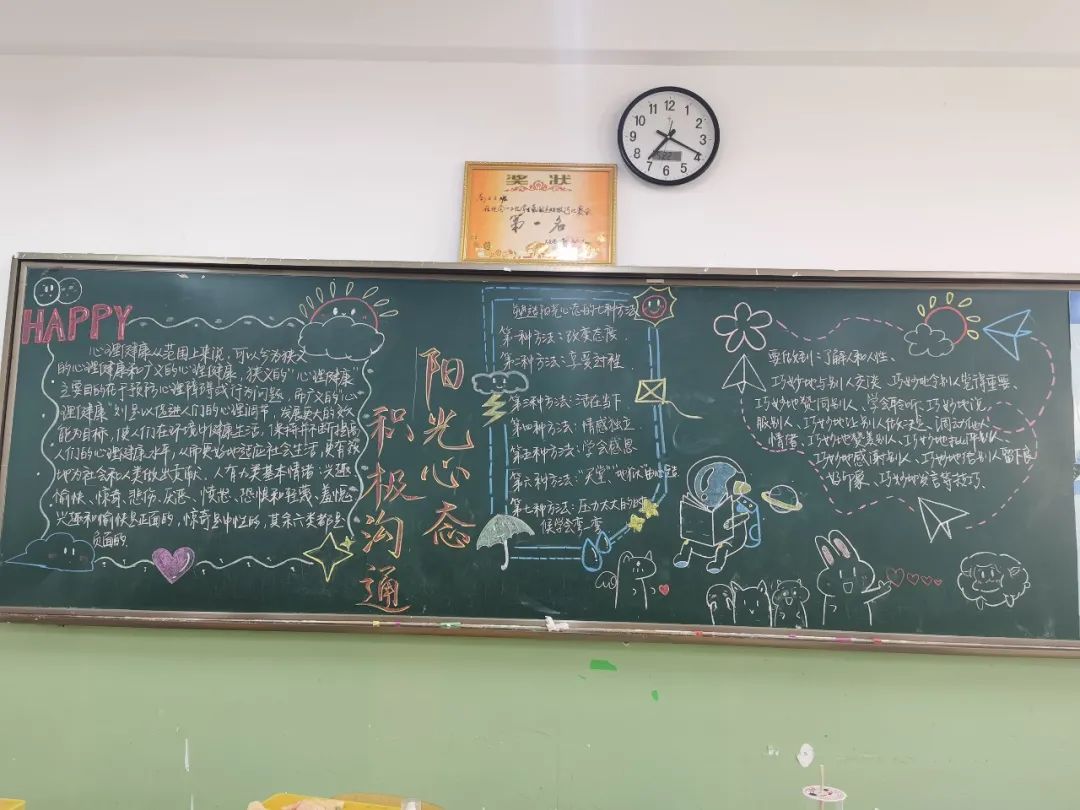 12
1
2
3
4
5
6
7
8
9
10
11
奖状
第一名
HAPPY
心理健康从范围上来说,可以分为狭义
的心理健康和广义的心理健康,狭义的“心理健康”
主要目的在于预防心理障碍或行为问题,而广义的“心
理健康”则是以促进人们的心理调节,发展更大的效
能为目标,使人们在环境中健康生活,保持并不断提高
人们的心理健康水平,从而更好地适应社会生活,更有效
地为社会和人类做出贡献。人有九类基本情绪:兴趣
愉快、惊奇、悲伤、厌恶、愤怒、恐惧和轻蔑、羞愧
兴趣和愉快是正面的,惊奇是中性的,其余六类都是
负面的.
阳光心态
积极沟通
塑造阳光心态的七种方法
第一种方法:改变态度.
第二种方法:享受过程
第三种方法:活在当下.
第四种方法:情感独立.
第五种方法:学会感恩
第六种方法:“天堂”地狱由心造
第七种方法:压力太大的时
候学会弯一弯
要做到:了解人和人性、
巧妙地与别人交谈、巧妙地令别人觉得重要、
巧妙地赞同别人、学会聆听、巧妙地说
服别人、巧妙地让别人做决定、调动他人
情绪、巧妙地赞美别人、巧妙地批评别人、
巧妙地感谢别人、巧妙地给别人留下良
好印象、巧妙地发言等技巧、